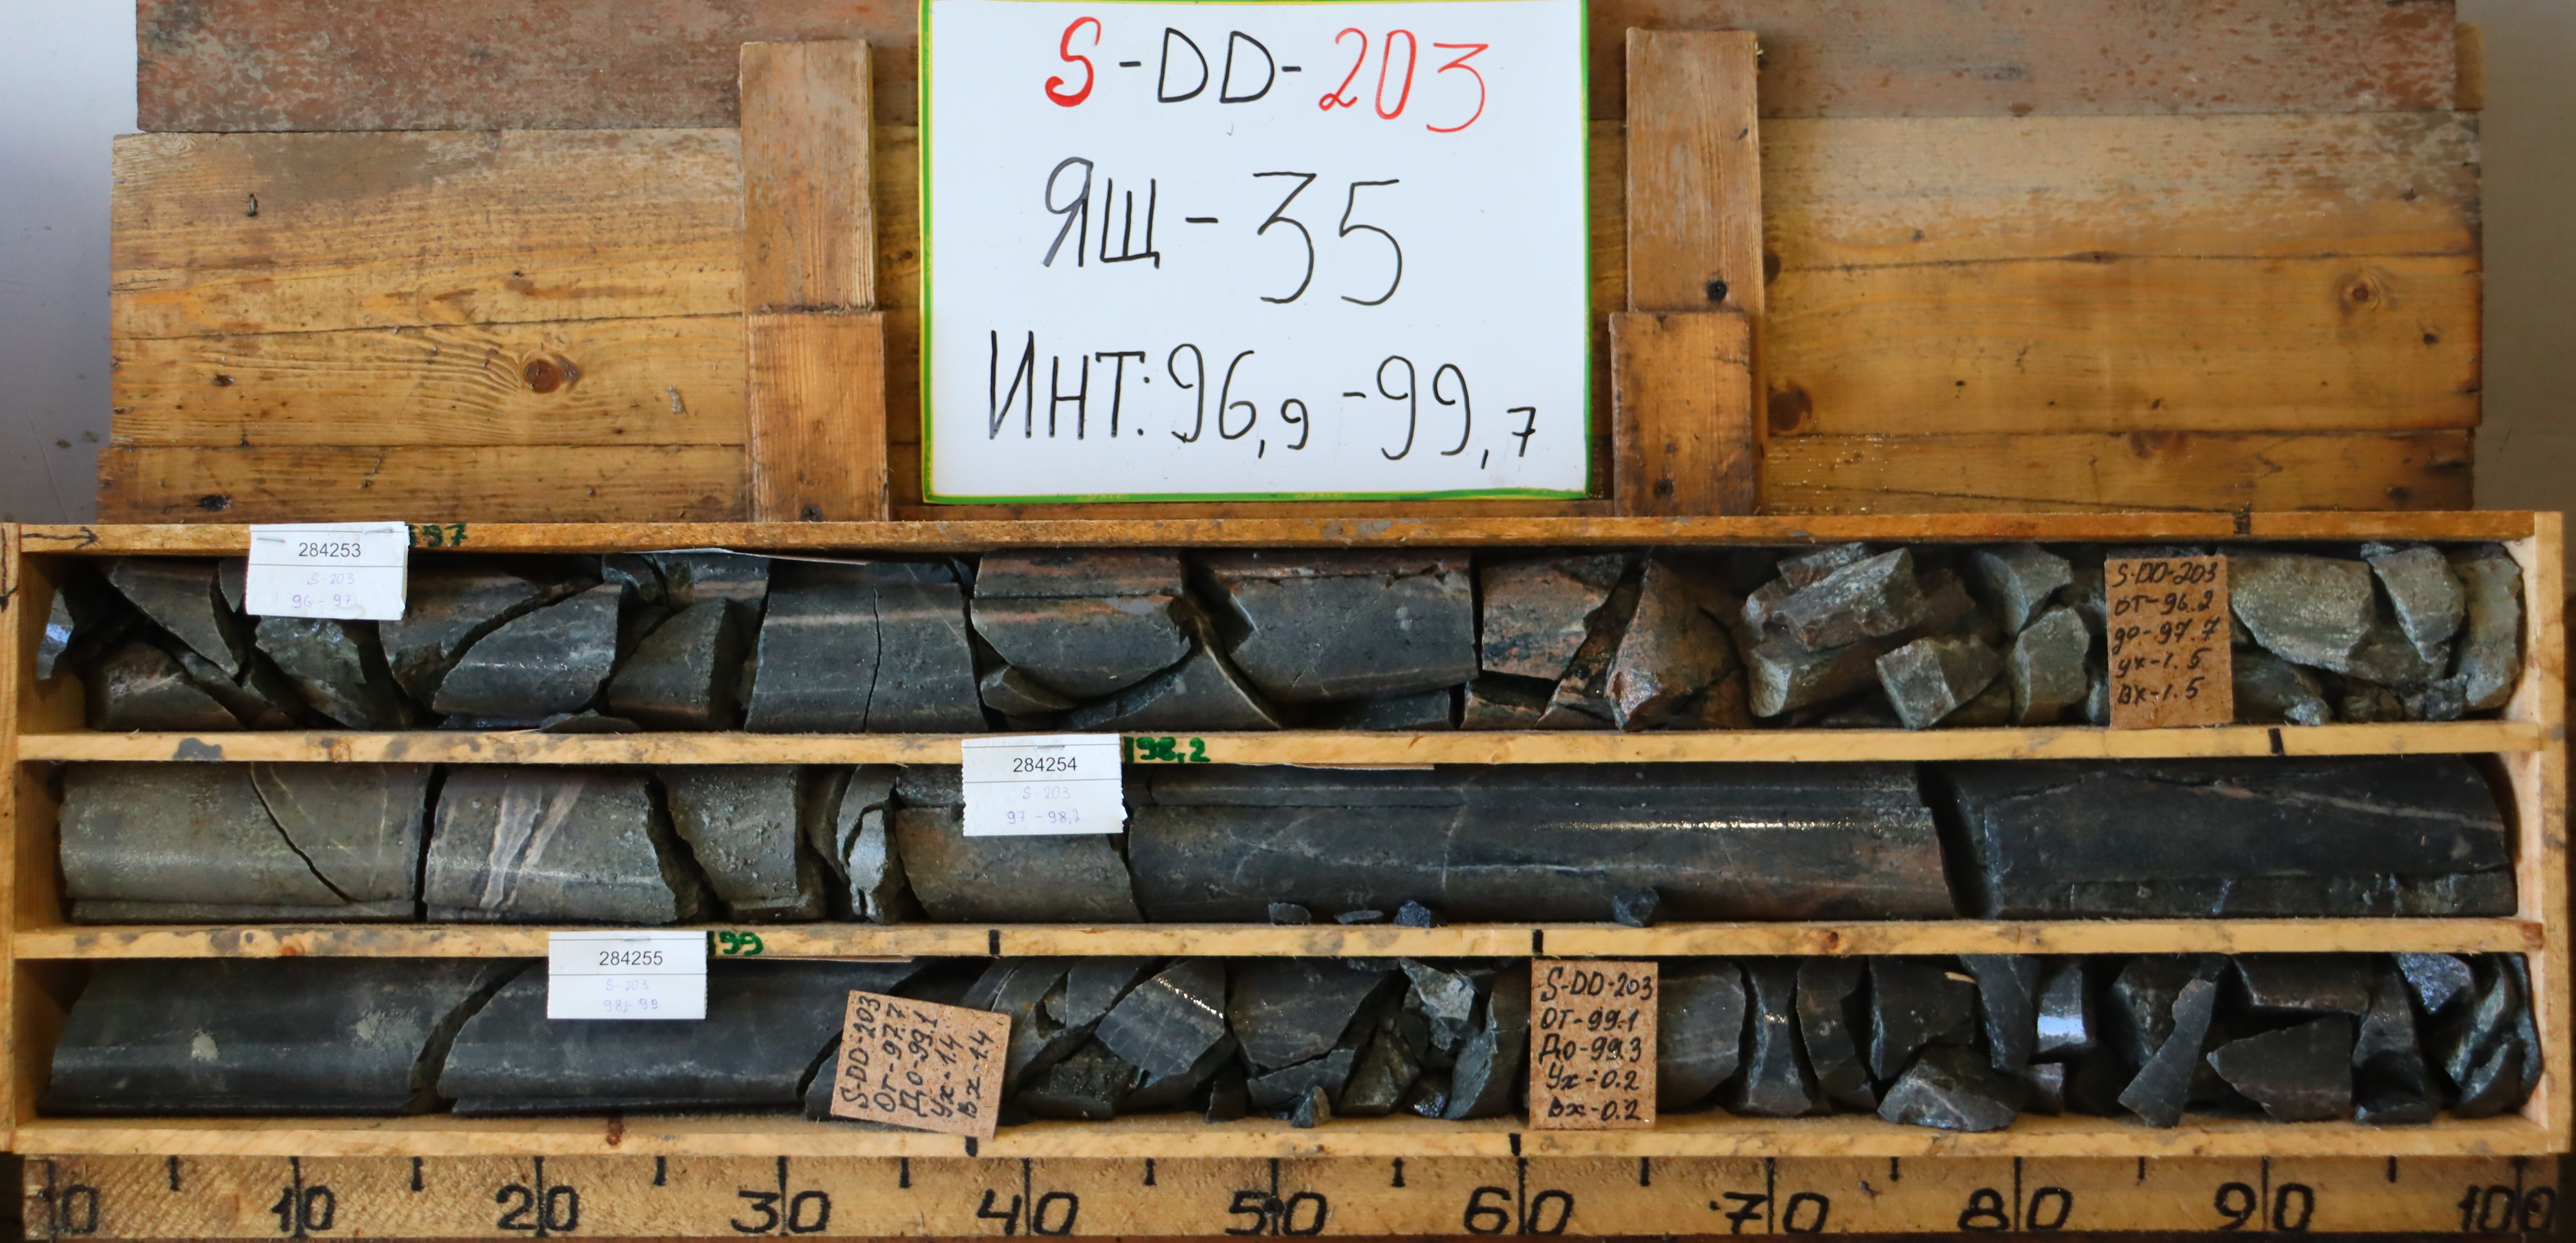 S-DD-203
ЯЩ-35
ИНТ:96,9-99,7
284253
S-203
96-97
97
S-DD-203
от-96.2
до-97.7
ух-1.5
вх-1.5
284254
S-203
97-98,2
98,2
284255
S-203
99
S-DD-203
От-97.7
До-99.1
Ух-1.4
Вх-1.4
S-DD-203
От-99.1
До-99.3
Ух-0.2
Вх-0.2
0 10 20 30 40 50 60 70 80 90 100